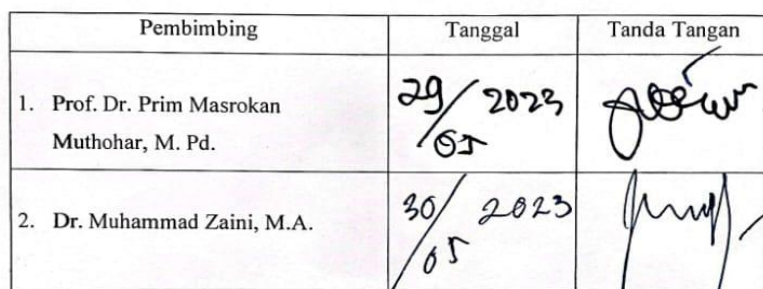 Pembimbing Tanggal Tanda Tangan
1. Prof. Dr. Prim Masrokan
Muthohar, M. Pd.
29/05 2023
2. Dr. Muhammad Zaini, M.A.
30/05 2023